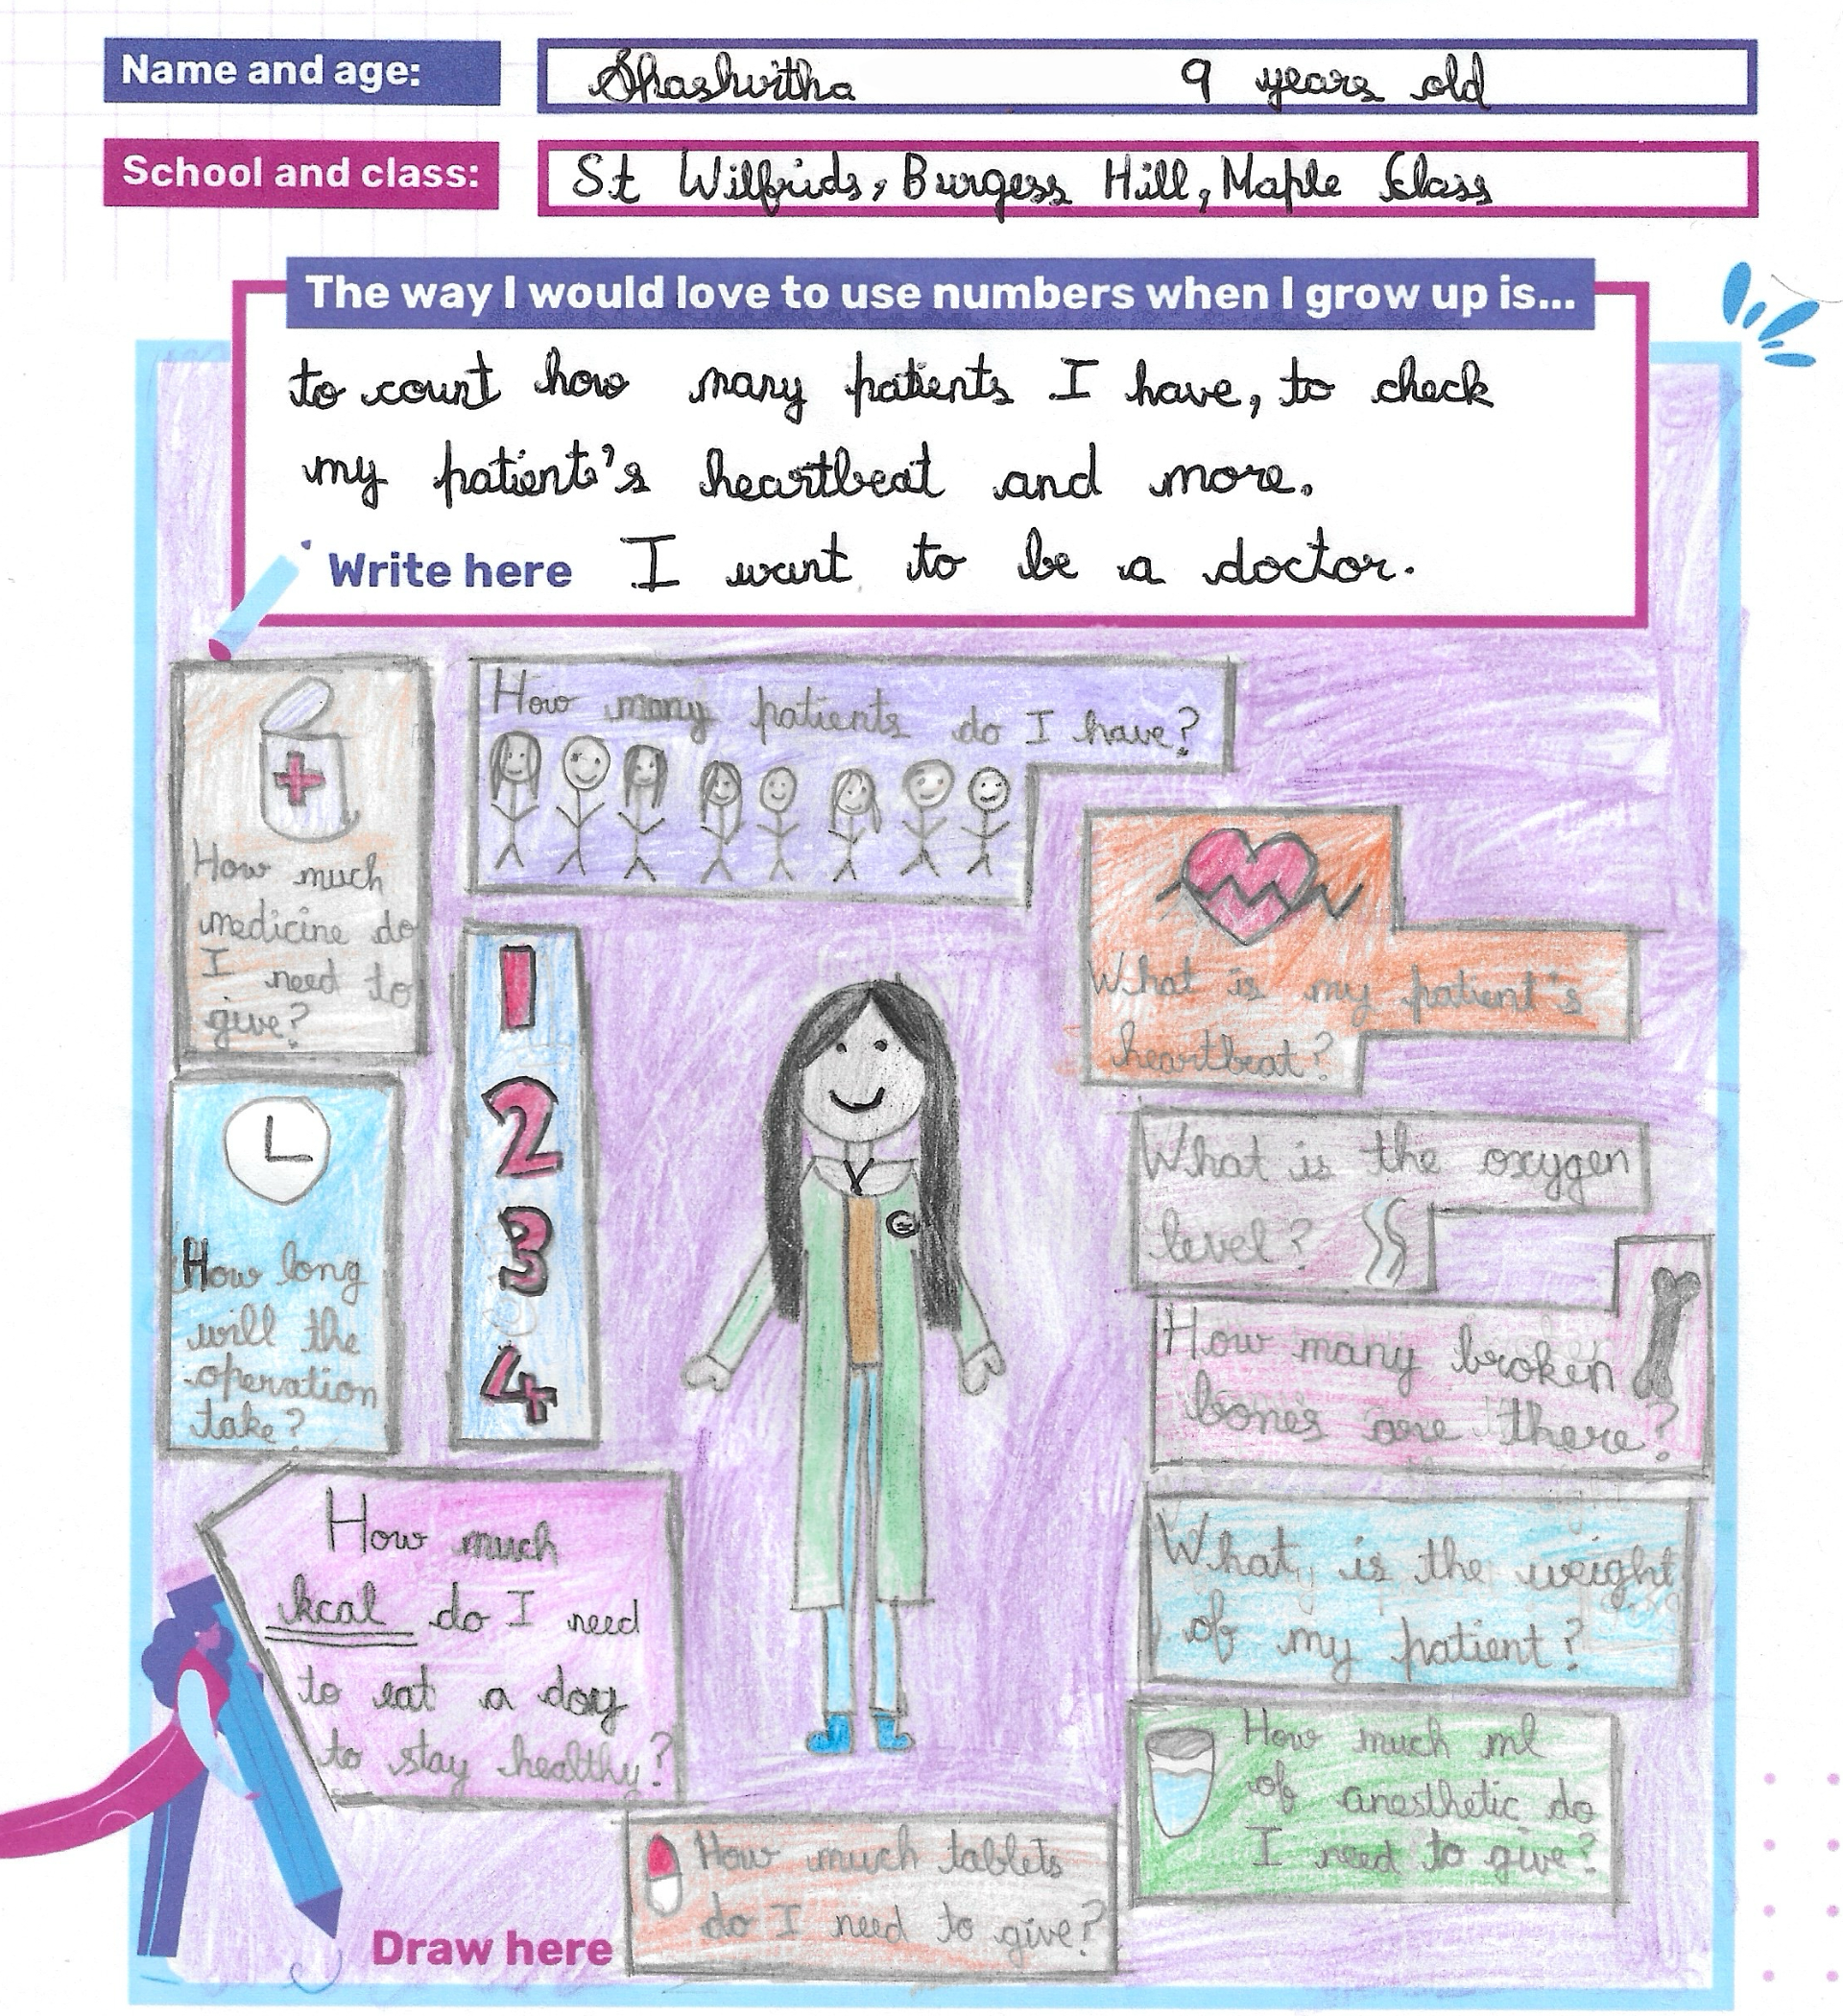 Name and age:
Shashvitha 9 years old
School and class:
St Wilfrids, Burgess Hill, Maple Class
The way I would love to use numbers when I grow up is...
to count how many patients I have, to check
my patient's heartbeat and more.
Write here I want to be a doctor.
How much
medicine do
I need to
give?
How many patients do I have?
What is my patient's
heartbeat?
1
2
3
4
How long
will the
operation
take?
What is the oxygen
level?
How many broken
bones are there?
How much
kcal do I need
to eat a day
to stay healthy?
What is the weight
of my patient?
How much ml
of anesthetic do
I need to give?
How much tablets
do I need to give?
Draw here